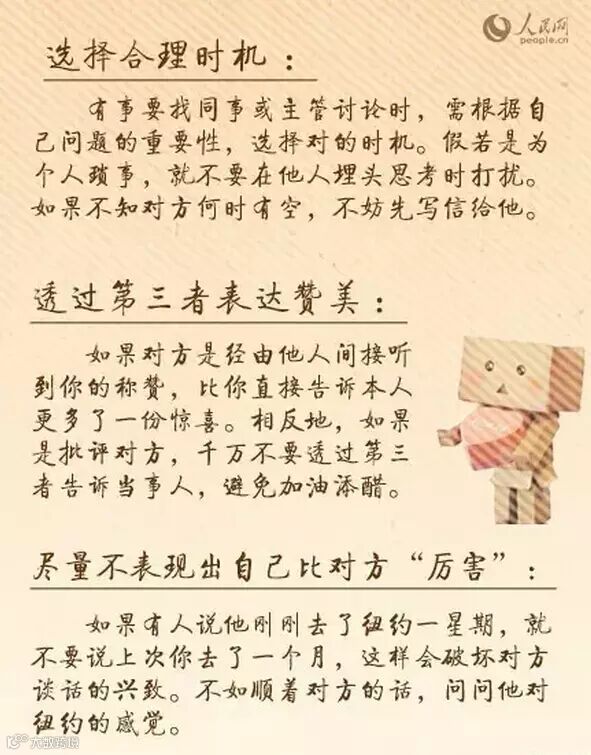 人民网
people.cn
选择合理时机：
有事要找同事或主管讨论时，需根据自
己问题的重要性，选择对的时机。假若是为
个人琐事，就不要在他人埋头思考时打扰。
如果不知对方何时有空，不妨先写信给他。
透过第三者表达赞美：
如果对方是经由他人间接听
到你的称赞，比你直接告诉本人
更多了一份惊喜。相反地，如果
是批评对方，千万不要透过第三
者告诉当事人，避免加油添醋。
尽量不表现出自己比对方“厉害”：
如果有人说他刚刚去了纽约一星期，就
不要说上次你去了一个月，这样会破坏对方
谈话的兴致。不如顺着对方的话，问问他对
纽约的感觉。
大数跨境